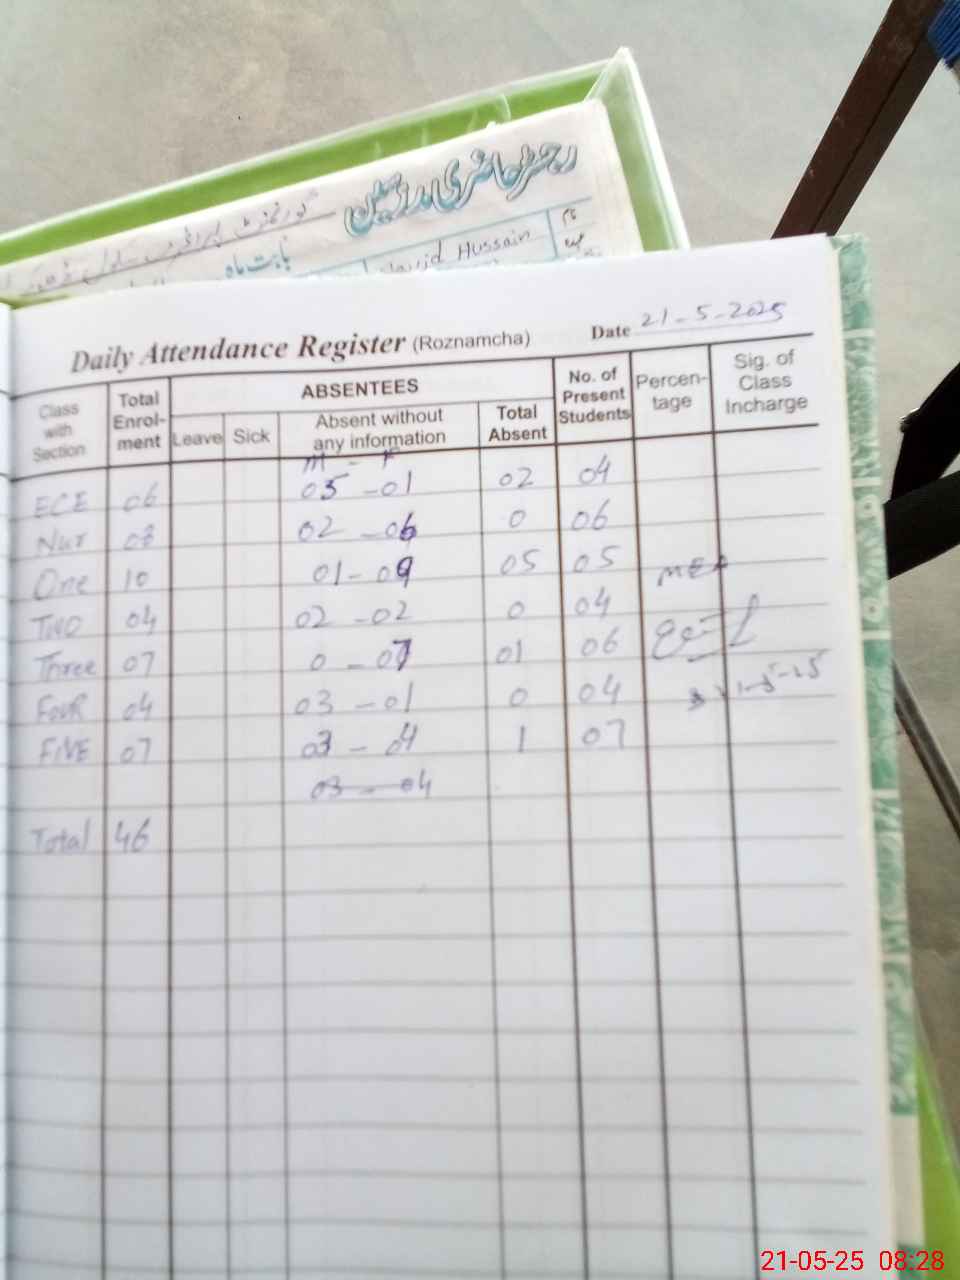 رجسٹر حاضری مدرسین
گورنمنٹ پرائمری سکول
بابت ماہ
نام
Hussain
Daily Attendance Register (Roznamcha) Date 21-5-2025
Class with Section Total Enrol-ment ABSENTEES No. of Present Students Percen-tage Sig. of Class Incharge
Leave Sick Absent without any information Total Absent
M - F
ECE 06 05 - 01 02 04
Nur 08 02 - 06 0 06
One 10 01 - 09 05 05
TWO 04 02 - 02 0 04
Three 07 0 - 07 01 06
FOUR 04 03 - 01 0 04
FIVE 07 03 - 04 1 07
03 - 04
Total 46
MEA
21-05-25 08:28